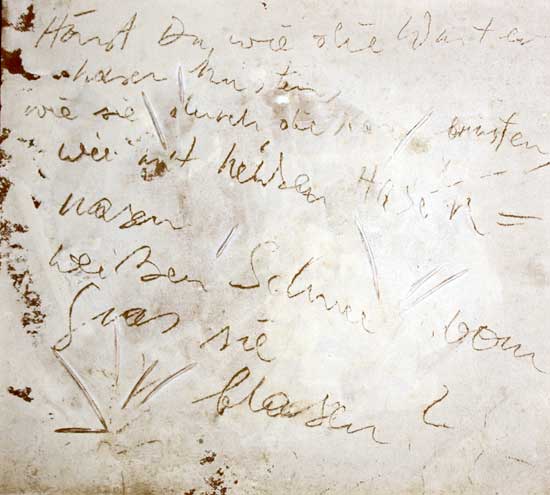 Hörst Du, wie die Winter
hasen husten,
wie sie durch die prusten,
wie mit heißen Hasen=
nasen
weißen Schnee vom
Gras sie
blasen?